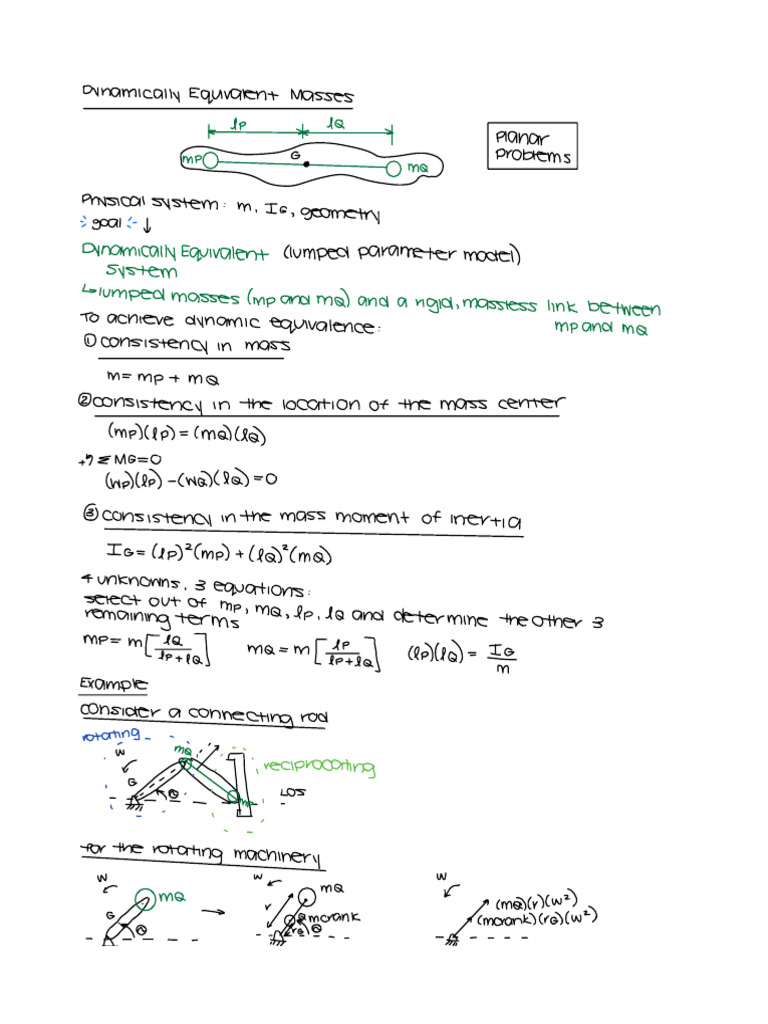 Dynamically Equivalent Masses
lP lQ
Planar
Problems
mP G mQ
Physical system: m, IG, geometry
goal ↓
Dynamically Equivalent (lumped parameter model)
System
↳ lumped masses (mP and mQ) and a rigid, massless link between
mP and mQ
To achieve dynamic equivalence:
① consistency in mass
m = mP + mQ
② consistency in the location of the mass center
(mP)(lP) = (mQ)(lQ)
+↰ ΣMG=0
(WP)(lP) - (WQ)(lQ) = 0
③ consistency in the mass moment of inertia
IG = (lP)²(mP) + (lQ)²(mQ)
4 unknowns, 3 equations:
select out of mP, mQ, lP, lQ and determine the other 3
remaining terms
mP = m[lQ/(lP+lQ)] mQ = m[lP/(lP+lQ)] (lP)(lQ) = IG/m
Example
consider a connecting rod
rotating
W mQ
reciprocating
G θ mP LOS
for the rotating machinery
W mQ G θ → W mQ r mcrank rG θ W (mQ)(r)(w²)
(mcrank)(rG)(w²)